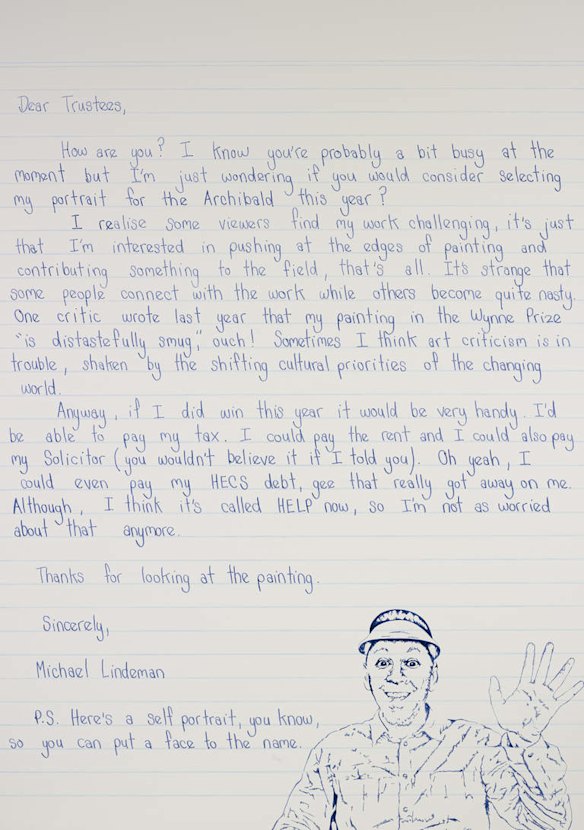 Dear Trustees,
How are you? I know you're probably a bit busy at the
moment but I'm just wondering if you would consider selecting
my portrait for the Archibald this year?
I realise some viewers find my work challenging, it's just
that I'm interested in pushing at the edges of painting and
contributing something to the field, that's all. It's strange that
some people connect with the work while others become quite nasty.
One critic wrote last year that my painting in the Wynne Prize
"is distastefully smug," ouch! Sometimes I think art criticism is in
trouble, shaken by the shifting cultural priorities of the changing
world.
Anyway, if I did win this year it would be very handy. I'd
be able to pay my tax. I could pay the rent and I could also pay
my Solicitor (you wouldn't believe it if I told you). Oh yeah, I
could even pay my HECS debt, gee that really got away on me.
Although, I think it's called HELP now, so I'm not as worried
about that anymore.
Thanks for looking at the painting.
Sincerely,
Michael Lindeman
P.S. Here's a self portrait, you know,
so you can put a face to the name.